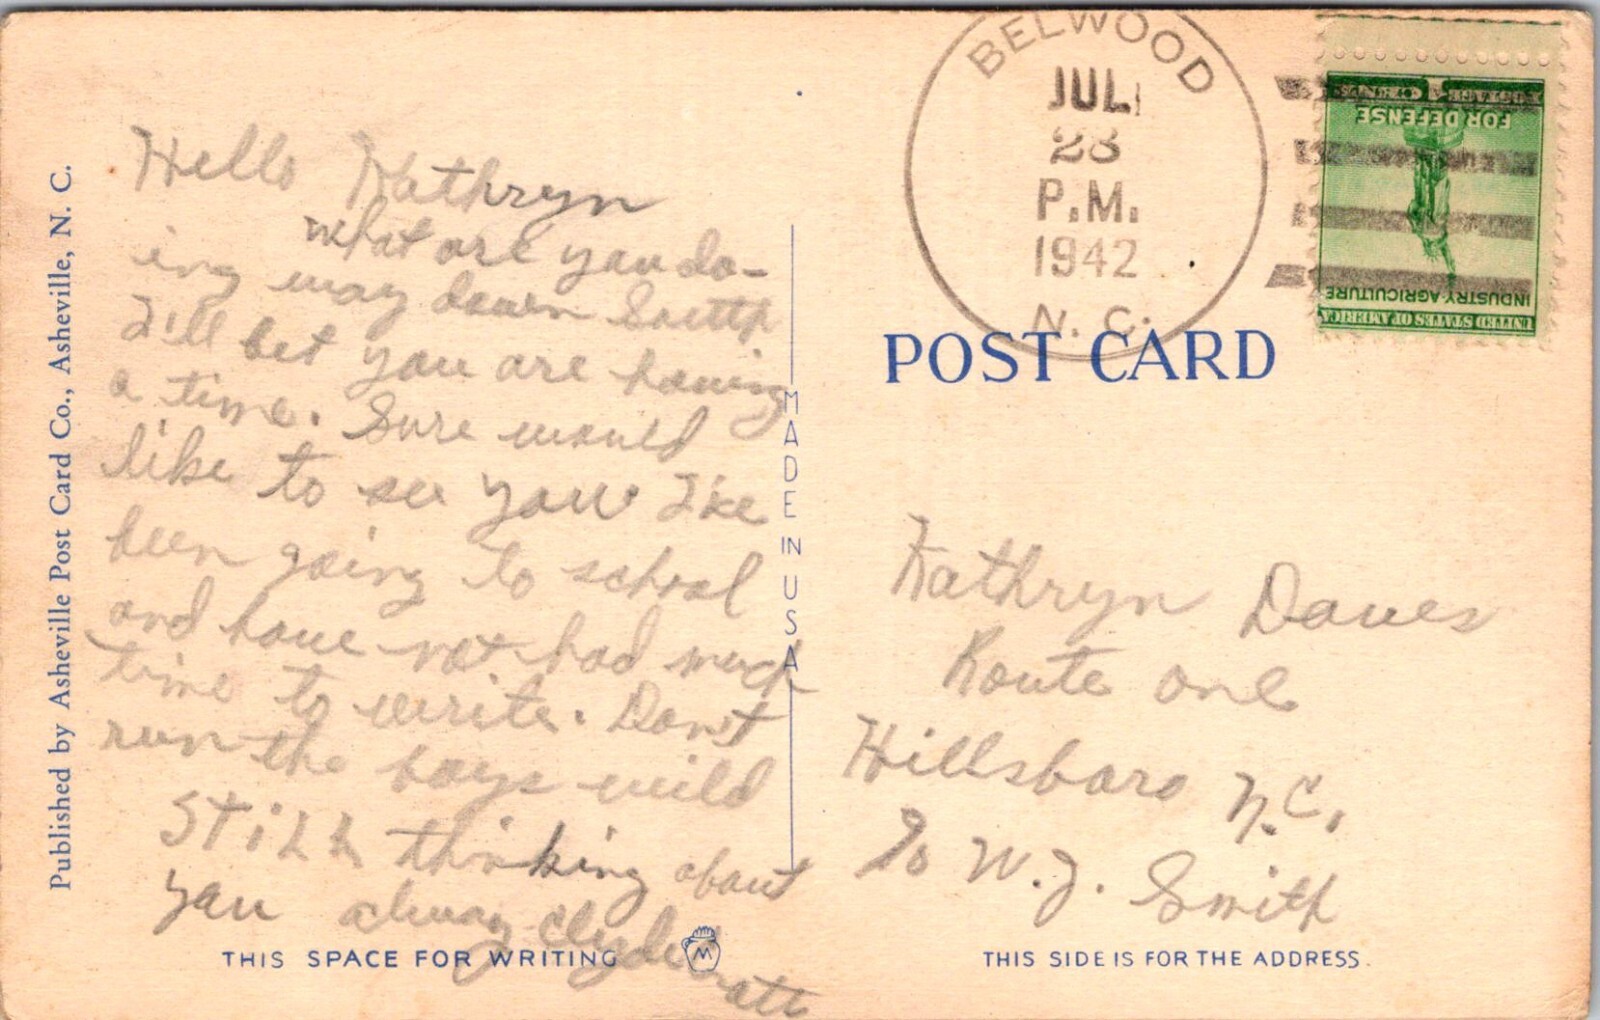 Published by Asheville Post Card Co., Asheville, N. C.
Hello Kathryn
What are you do-
ing way down South
I'll bet you are having
a time. Sure would
like to see you. I've
been going to school
and have not had much
time to write. Don't
run the boys wild
Still thinking about
you always Clyde
THIS SPACE FOR WRITING
M
MADE IN USA
BELWOOD
JUL
28
P.M.
1942
N. C.
POSTAGE 1 CENT
FOR DEFENSE
INDUSTRY AGRICULTURE
UNITED STATES OF AMERICA
POST CARD
Kathryn Daves
Route one
Hillsboro N.C.
% W. J. Smith
THIS SIDE IS FOR THE ADDRESS.